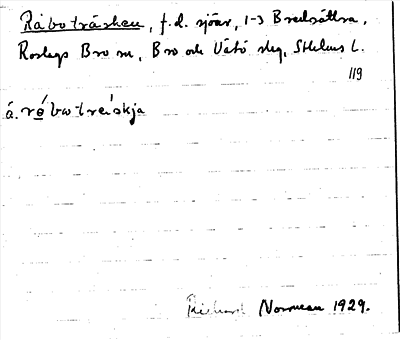 Råboträsken, f.d. sjöar, 1-3 Bredsättra,
Roslags Bro sn, Bro och Vätö slg, Sthlms l.
119
å. rǻ bω trä́skja
Richard Norrman 1929.